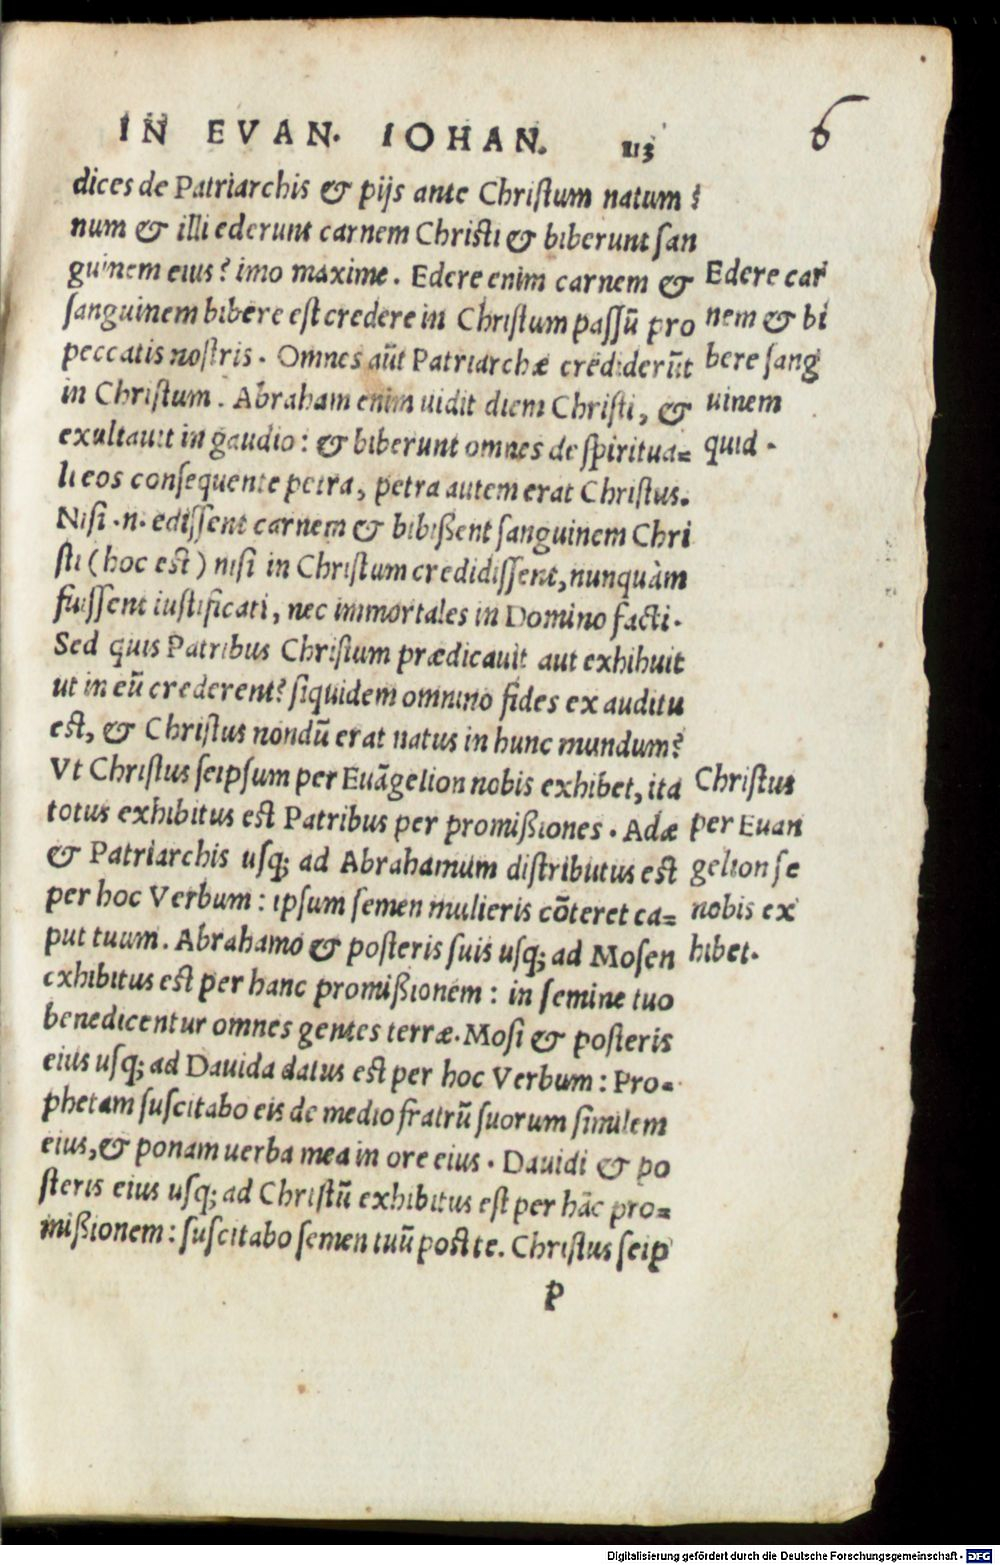 IN EVAN. IOHAN. 113 6
dices de Patriarchis & pijs ante Christum natum?
num & illi ederunt carnem Christi & biberunt san
guinem eius? imo maxime. Edere enim carnem &
sanguinem bibere est credere in Christum passũ pro
peccatis nostris. Omnes aũt Patriarchæ crediderũt
in Christum. Abraham enim uidit diem Christi, &
exultauit in gaudio: & biberunt omnes de spiritua=
li eos consequente petra, petra autem erat Christus.
Nisi .n. edissent carnem & bibißent sanguinem Chri
sti (hoc est) nisi in Christum credidissent, nunquàm
fuissent iustificati, nec immortales in Domino facti.
Sed quis Patribus Christum prædicauit aut exhihuit
ut in eũ crederent? siquidem omnino fides ex auditu
est, & Christus nondũ erat natus in hunc mundum?
Vt Christus seipsum per Euãgelion nobis exhibet, ita
totus exhibitus est Patribus per promißiones. Adæ
& Patriarchis usq; ad Abrahamum distributus est
per hoc Verbum: ipsum semen mulieris cõteret ca=
put tuum. Abrahamo & posteris suis usq; ad Mosen
exhibitus est per hanc promißionem: in semine tuo
benedicentur omnes gentes terræ. Mosi & posteris
eius usq; ad Dauida datus est per hoc Verbum: Pro=
phetam suscitabo eis de medio fratrũ suorum similem
eius, & ponam uerba mea in ore eius. Dauidi & po
steris eius usq; ad Christũ exhibitus est per hãc pro=
mißionem: suscitabo semen tuũ post te. Christus seip
P
Edere car
nem & bi
bere sang
uinem
quid.
Christus
per Euan
gelion se
nobis ex
hibet.
Digitalisierung gefördert durch die Deutsche Forschungsgemeinschaft - DFG